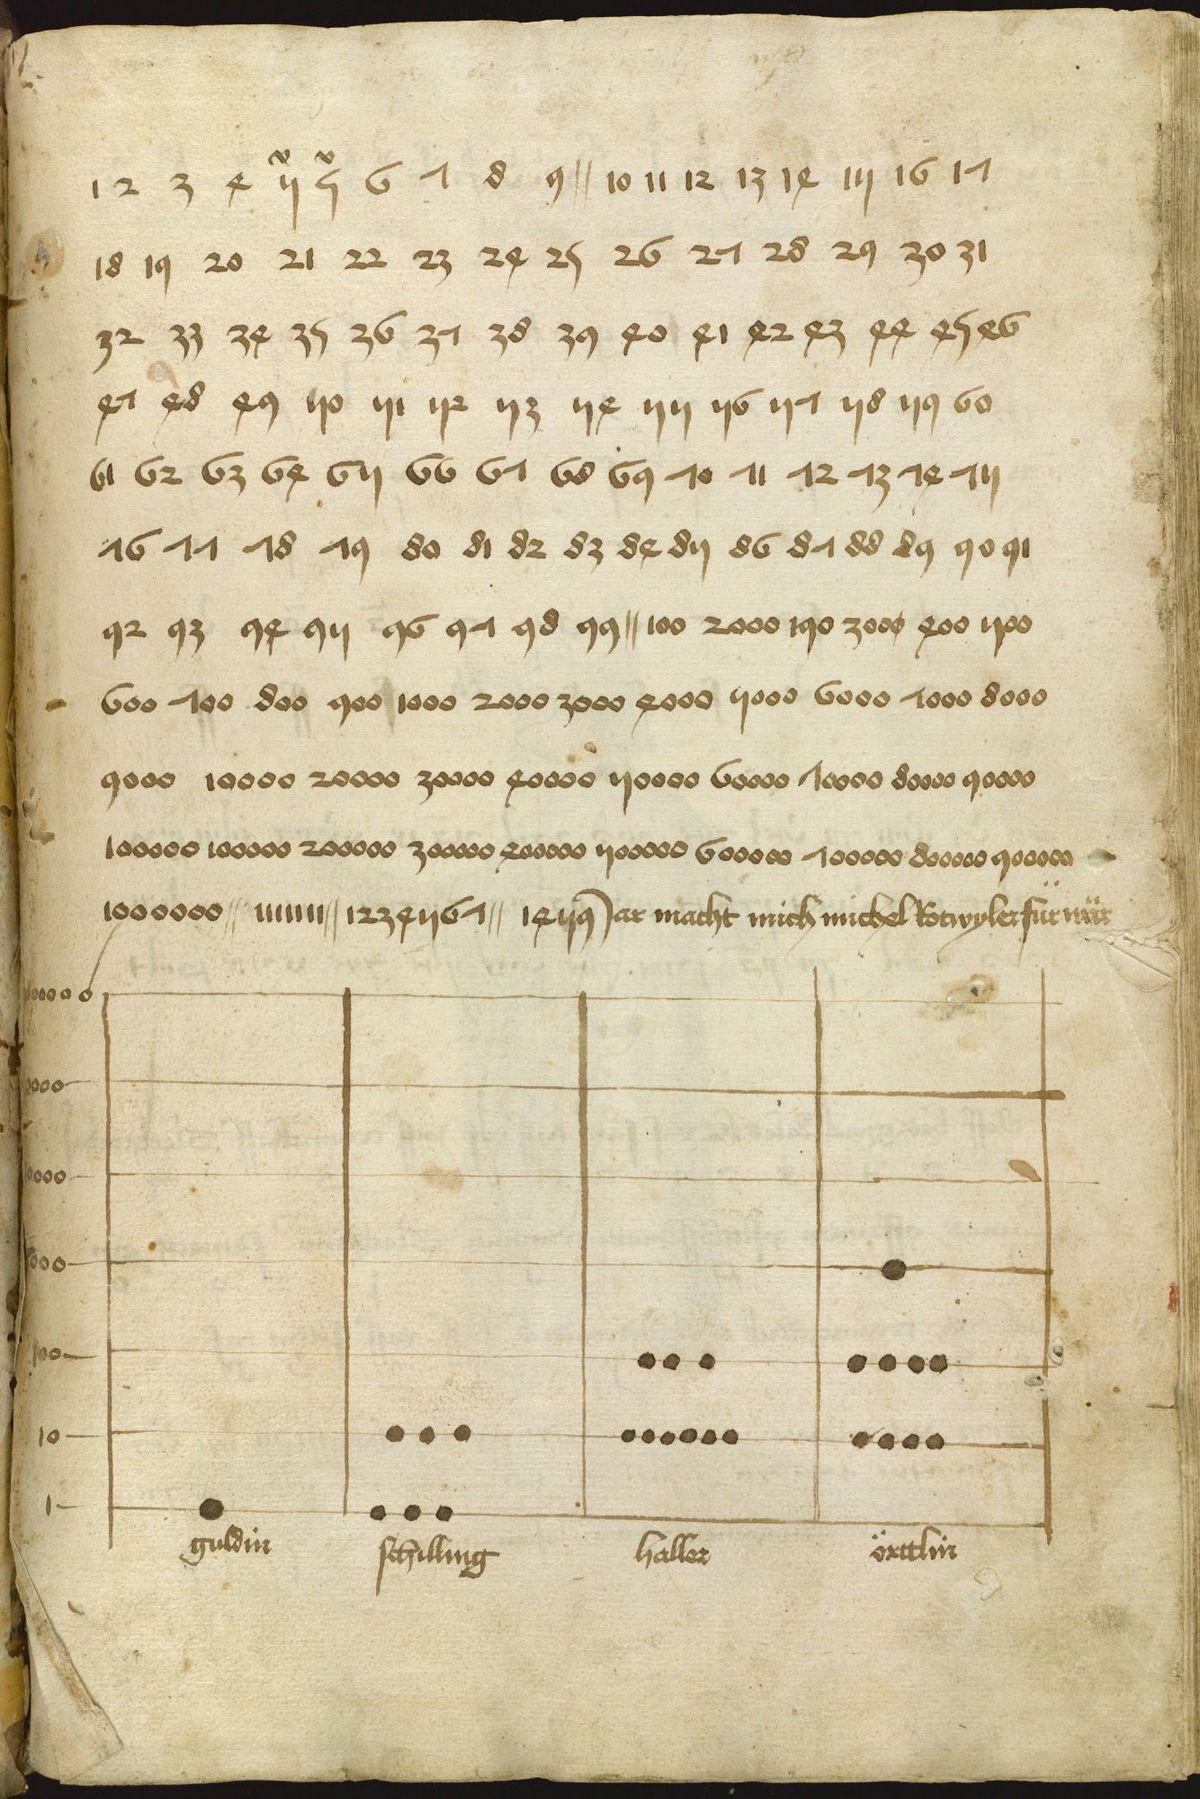 1 2 3 4 5 5 6 7 8 9 // 10 11 12 13 14 15 16 17
18 19 20 21 22 23 24 25 26 27 28 29 30 31
32 33 34 35 36 37 38 39 40 41 42 43 44 45 46
47 48 49 50 51 52 53 54 55 56 57 58 59 60
61 62 63 64 65 66 67 68 69 70 71 72 73 74 75
76 77 78 79 80 81 82 83 84 85 86 87 88 89 90 91
92 93 94 95 96 97 98 99 // 100 2000 190 3000 400 500
600 700 800 900 1000 2000 3000 4000 5000 6000 7000 8000
9000 10000 20000 30000 40000 50000 60000 70000 80000 90000
100000 100000 200000 300000 400000 500000 600000 700000 800000 900000
1000000 // 1111111 // 1234567 // 1459 Jar macht mich michel Rotwyler für wär
100
10
1
guldin schilling haller örttlin